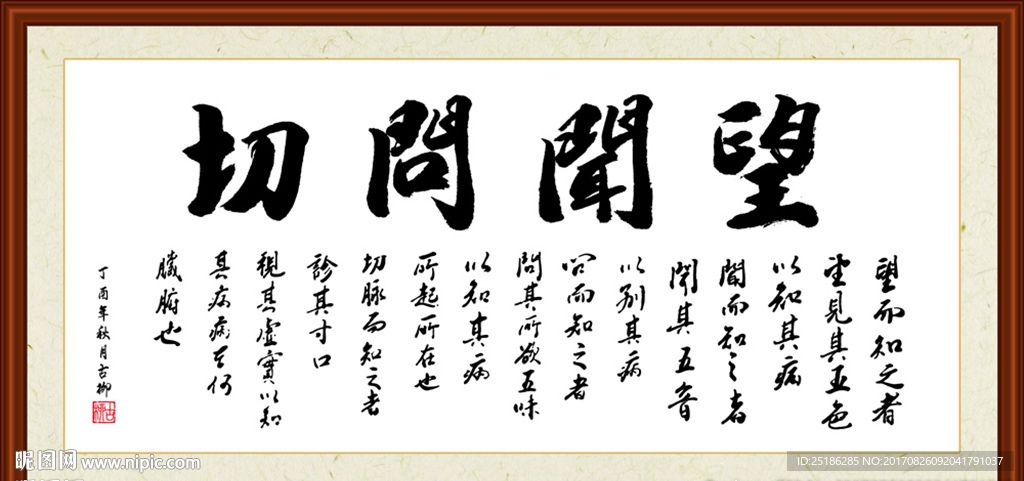 望聞問切
望而知之者
望見其五色
以知其病
聞而知之者
聞其五音
以别其病
问而知之者
問其所欲五味
以知其病
所起所在也
切脉而知之者
診其寸口
視其虚實以知
其病病在何
臟腑也
丁酉年秋月古柳
昵图网 www.nipic.com
ID:25186285 NO:20170826092041791037